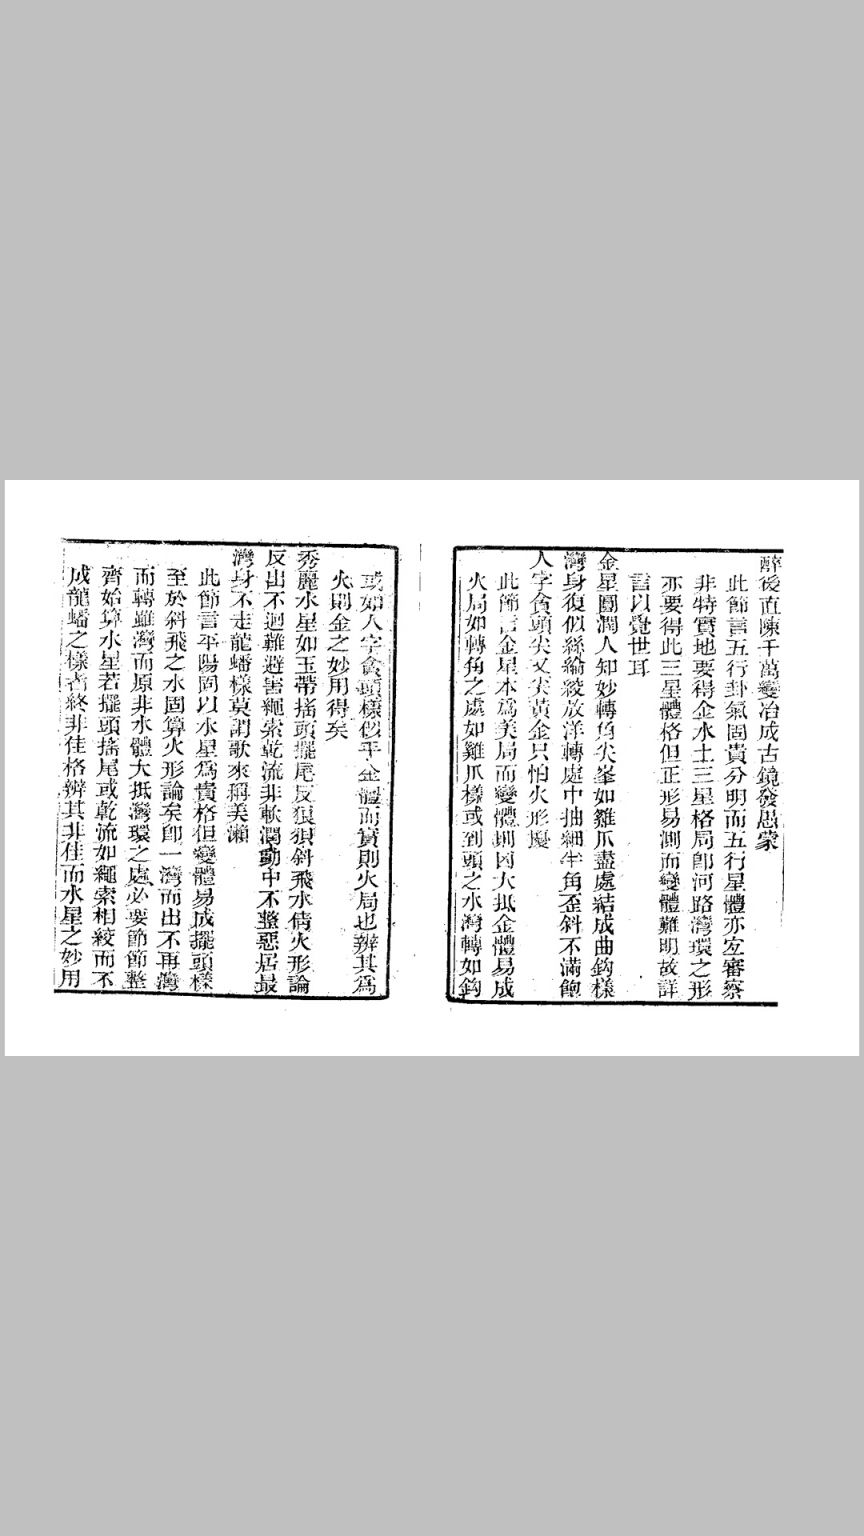 醉後直陳千萬變冶成古鏡發愚蒙
此節言五行卦氣固貴分明而五行星體亦宜審察
非特實地要得金水土三星格局卽河路灣環之形
亦要得此三星體格但正形易測而變體難明故詳
言以覺世耳
金星圓潤人知妙轉角尖峯如雞爪盡處結成曲鈎樣
灣身復似絲綸綾放洋轉處中抽細牛角歪斜不滿飽
人字貪頭尖又尖黃金只怕火形擾
此節言金星本爲美局而變體則凶大抵金體易成
火局如轉角之處如雞爪樣或到頭之水灣轉如鈎
或如人字貪頭樣似乎金體而實則火局也辨其爲
火則金之妙用得矣
秀麗水星如玉帶搖頭擺尾反狼狽斜飛水倩火形論
反出不迴難避害繩索乾流非軟濶動中不整惡居最
灣身不走龍蟠樣莫謂歌來稱美瀨
此節言平陽固以水星爲貴格但變體易成擺頭樣
至於斜飛之水固算火形論矣卽一灣而出不再灣
而轉雖灣而原非水體大抵灣環之處必要節節整
齊始算水星若擺頭搖尾或乾流如繩索相絞而不
成龍蟠之樣者終非佳格辨其非佳而水星之妙用